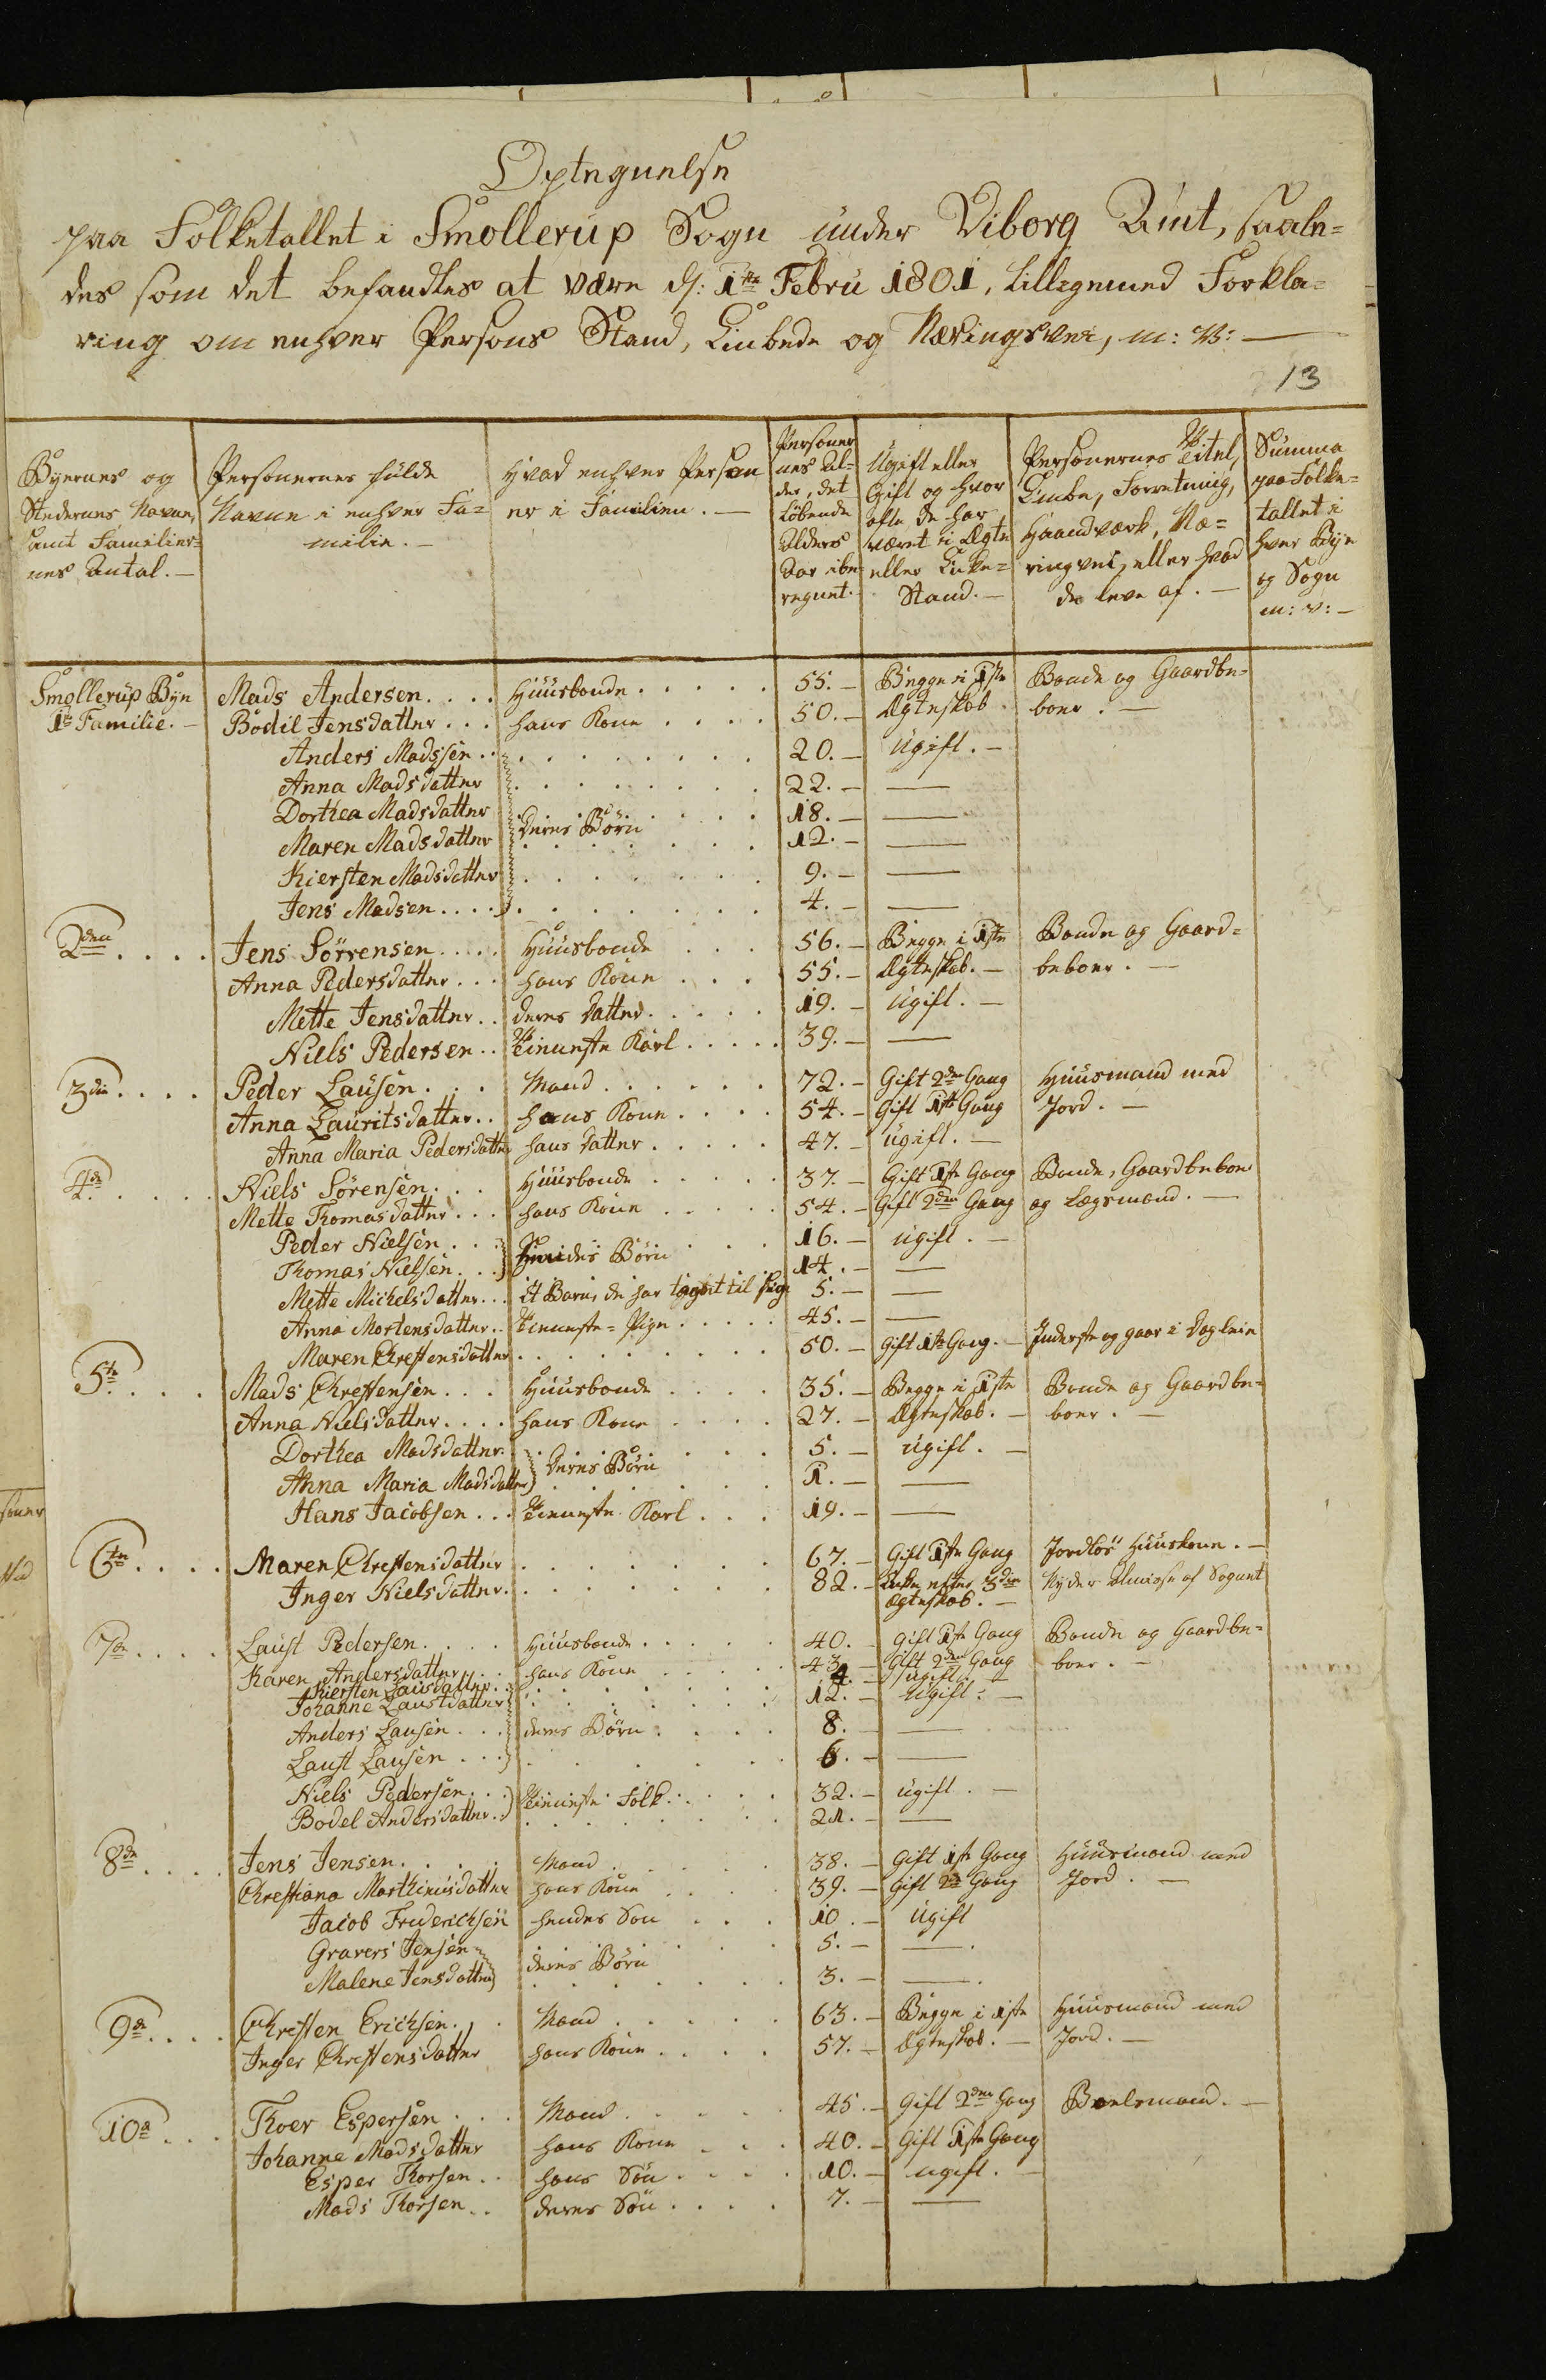 Optegnelse
paa Folketallet i Smollerup Sogn under Viborg Amt, saale=
des som det befandtes at være d: 1ste Febru 1801, tilligemed Forkla=
ring om enhver Persons Stand, Embede og Næringsvei, m: v: —
13
Byernes og Stedernes Navne, samt Familier= nes Antal. —
Personernes fulde Navne i enhver Fa= milie. —
Hvad enhver Person er i Familien. —
Personer nes Al= der, det Løbende Alders Aar ibe regnet.
Ugift eller Gift og hvor ofte de har været i Ægte eller Enke= Stand. —
Personernes Titel, Embe, Forretning, Haandværk, Næ= ringvei, eller hvad de leve af. —
Summa paa Folke= tallet i hver Bye og Sogn m: v: —
Smollerup Bye Mads Andersen . . . . Huusbonde . . . . . 55. — Begge i 1ste Bonde og Gaardbe=
1te Familie. — Bodil Jensdatter . . . hans Kone . . . . 50. — Ægteskab. boer. —
Anders Madssen . . . . . . . . 20. — Ugift. —
Anna Madsdatter . . . . . . . 22. — —
Dorthea Madsdatter . . . . . . 18. — —
Maren Madsdatter deres Børn . . . . 12. — —
Kiersten Madsdatter . . . . . . 9. — —
Jens Madsen . . . . . . . . . 4. — —
2den . . . . Jens Sörrensen . . . . Huusbonde . . . 56. — Begge i 1ste Bonde og Gaard=
Anna Pedersdatter . . . hans Kone . . . 55. — Ægteskab. — beboer. —
Mette Jensdatter . . deres datter . . . . . 19. — Ugift. —
Niels Pedersen . . Tieneste Karl . . . . . 39. — —
3die . . . . Peder Lausen . . . Mand . . . . . . 72. — Gift 2den Gang Huusmand med
Anna Lauritsdatter . . hans Kone . . . . 54. — Gift 1ste Gang Jord. —
Anna Maria Pedersdatter hans datter . . . . . 47. — ugift. —
4de . . . . . Niels Sörensen . . . Huusbonde . . . . . 37. — Gift 1ste Gang Bonde, Gaardbeboer
Mette Thomasdatter . . . hans Kone . . . . . 54. — Gift 2den Gang og Lægsmand. —
Peder Nielsen . . . 16. — ugift. —
Thomas Nielsen . . . Børn . . . 14. — —
Mette Michelsdatter . . . et Barn, de har taget til sig 5. — —
Anna Mortensdatter . . Tieneste=Pige . . . . . 45. — —
Maren Chrestensdatter . . . . . . . . 50. — Gift 1ste Gang. — Inderste og gaar i Dagleie
5te . . . . Mads Chrestensen . . . Huusbonde . . . . 35. — Begge i 1ste Bonde og Gaardbe=
Anna Nielsdatter . . . . hans Kone . . . . 27. — Ægteskab. — boer. —
Dorthea Madsdatter . . . . . . 5. — ugift. —
Anna Maria Madsdatter deres Børn . . . 1. — —
Hans Jacobsen . . . Tieneste Karl . . . 19. — —
6te . . . . Maren Chrestensdatter . . . . . . . 67. — Gift 1ste Gang Jordløs Huuskone. —
Inger Nielsdatter . . . . . . . . 82. — Enke efter 3die Nyder Almisse af Sognet
Ægteskab. —
7de . . . . Laust Pedersen . . . . Huusbonde . . . . . 40. — Gift 1ste Gang Bonde og Gaardbe=
Karen Andersdatter . . . hans Kone . . . . . 43. — Gift 2den Gang boer. —
Kiersten Lausdatter . . . . . . . 4. — ugift. —
Johanne Laustdatter . . . . . . 12. — Ugift. —
Anders Lausen . . . deres Børn . . . . 8. — —
Laust Lausen . . . . . . . . 6. — —
Niels Pedersen . . . Tieneste Folk . . . . . 32. — ugift. —
Bodel Andersdatter . . . . . . . 21. — —
8de . . . . Jens Jensen . . . . Mand . . . . . 38. — Gift 1ste Gang Huusmand med
Chrestiana Marthinusdatter hans Kone . . . . 39. — Gift 2de Gang Jord. —
Jacob Friderichsen hendes Søn . . . 10. — Ugift
Gravers Jensen . . . . . . 5. — —.
Malene Jensdatter deres Børn . . . . 3. — —.
9de . . . . Chresten Erichsen . . . Mand . . . . . 63. — Begge i 1ste Huusmand med
Inger Chrestensdatter hans Kone . . . . 57. — Ægteskab. — Jord. —
10de . . . Thoer Espersen . . . Mand . . . . . 45. — Gift 2den Gang Boelsmand. —
Johanne Madsdatter hans Kone . . . 40. — Gift 1ste Gang
Esper Thorsen . . hans Søn . . . . 10. — ugift. —
Mads Thorsen . . deres Søn . . . . 7. — —